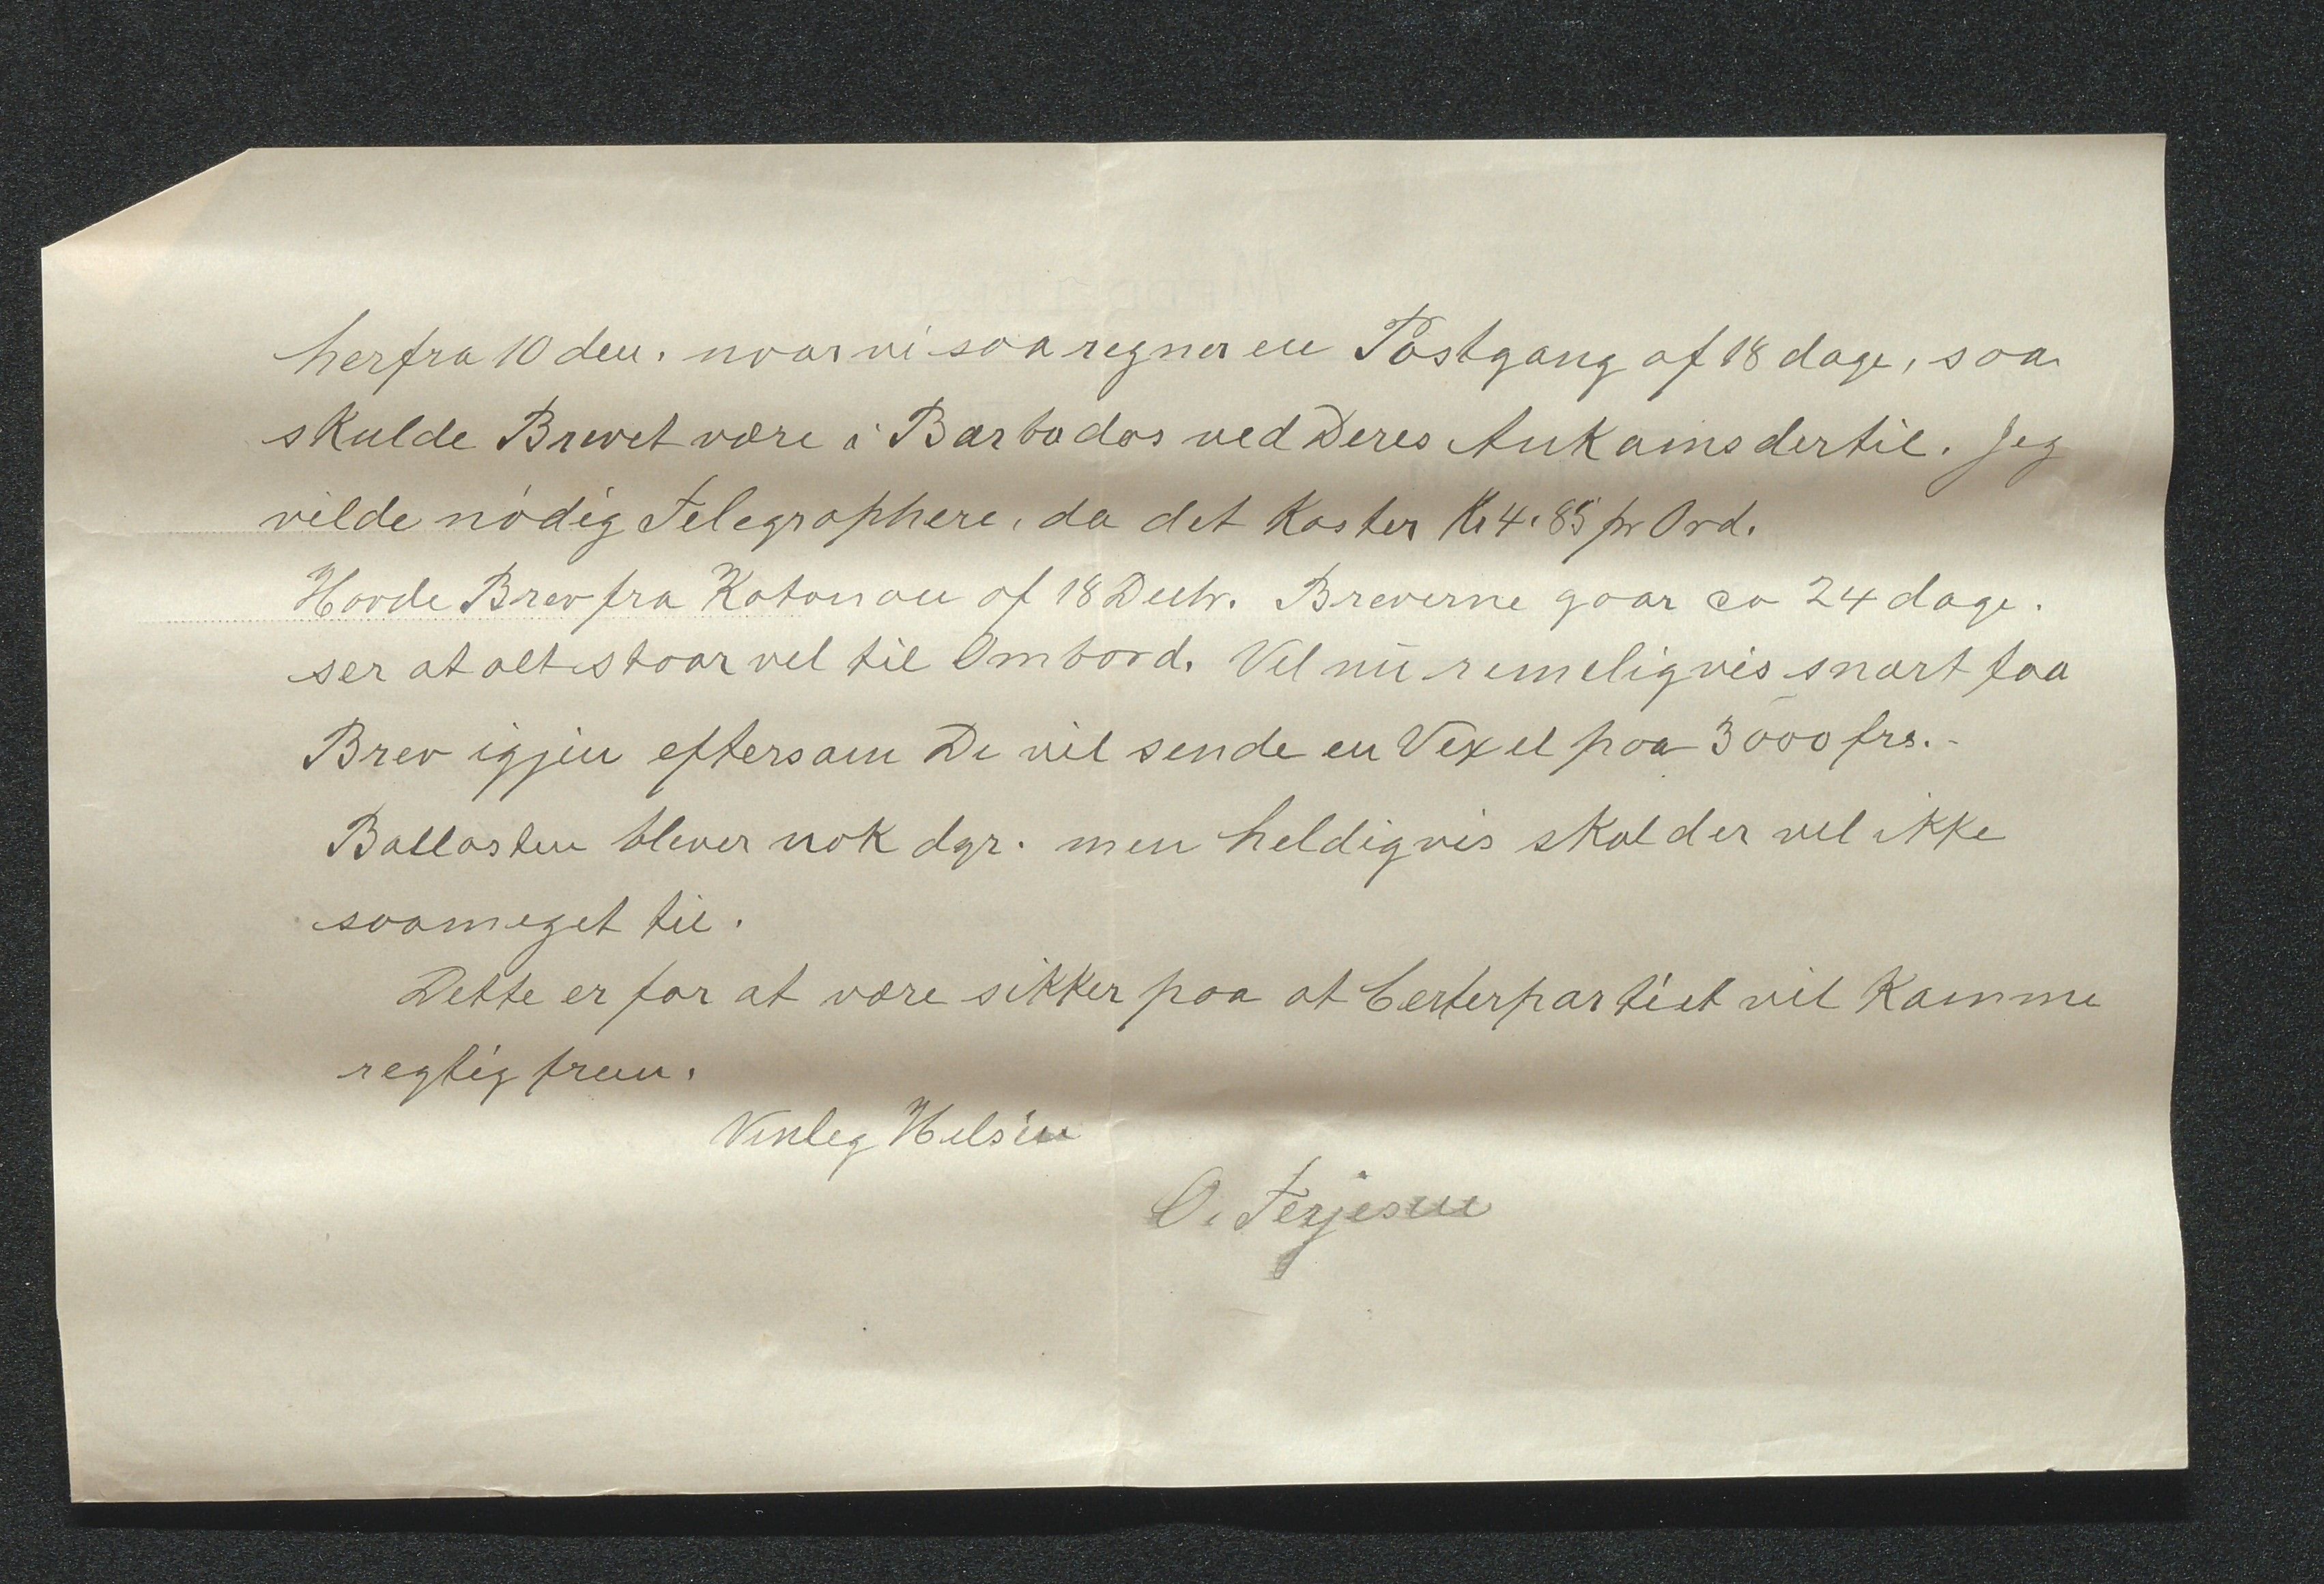 herfra 10 den. naar vi saa regner en Postgang af 18 dage, saa
skulde Brevet være i Barbados ved Deres Ankoms dertil. Jeg
vilde nódig Telegraphere, da det koster Kr 4.85 pr Ord.
Havde Brev fra Kotonou af 18 Decbr. Breverne gaar ca 24 dage.
ser at alt staar vel til Ombord. Vel nu remeligvis snart faa
Brev igjen eftersom De vil sende en Vexel paa 3000 frs.-
Ballasten blever nok dyr. men heldigvis skal der vel ikke
saameget til.
Dette er for at være sikker paa at Certerpartiet vil komme
regtig frem.
Venleg Hilsen
O. Terjesen